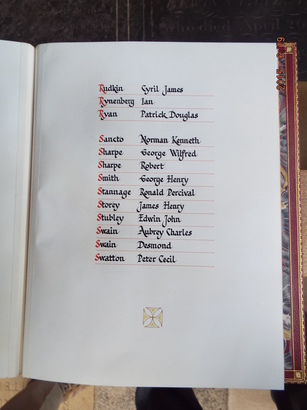 Rudkin Cyril James
Rynenberg Ian
Ryan Patrick Douglas
Sancto Norman Kenneth
Sharpe George Wilfred
Sharpe Robert
Smith George Henry
Stannage Ronald Percival
Storey James Henry
Stubley Edwin John
Swain Aubrey Charles
Swain Desmond
Swatton Peter Cecil